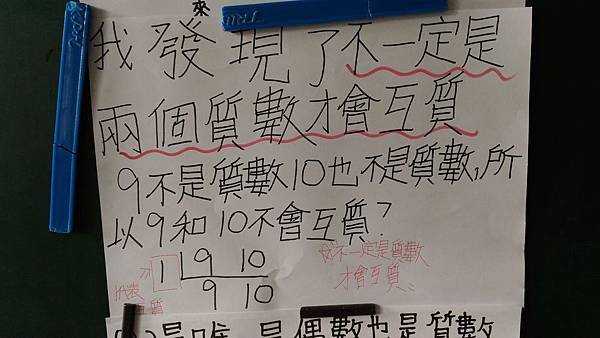 來
我發現了不一定是
兩個質數才會互質
9不是質數10也不是質數,所
以9和10不會互質?
1 9 10
9 10
代表
質
不一定是質數
才會互質
是唯一是偶數也是質數